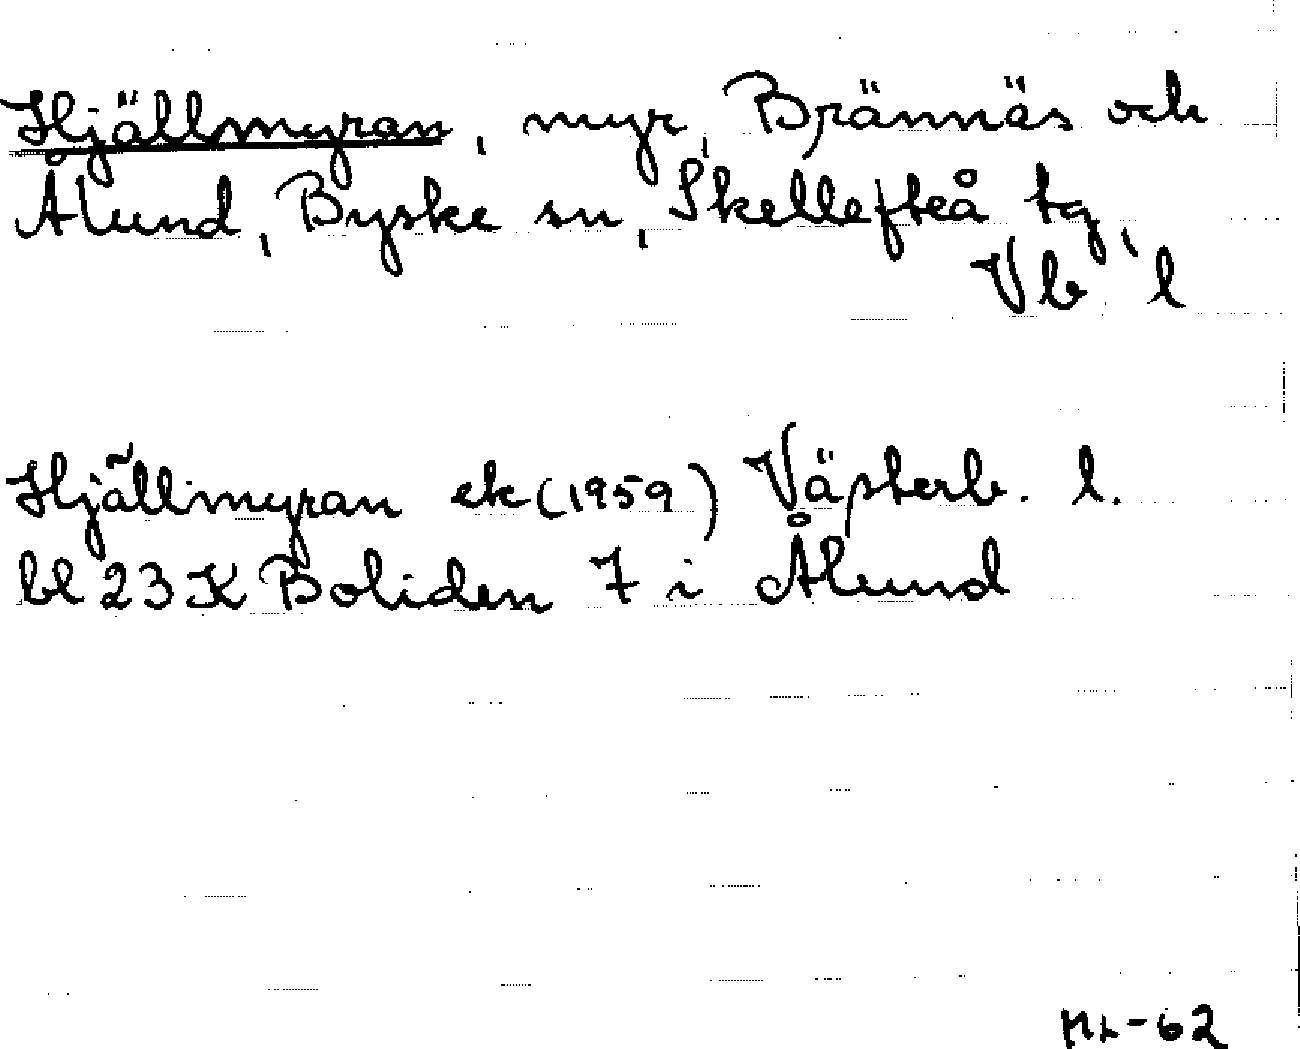 Hjällmyran, myr, Brännäs och
Ålund, Byske sn, Skellefteå tg,
Vb l
Hjällmyran ek (1959) Västerb. l.
bl 23 K Boliden 7 i Ålund
ML-62